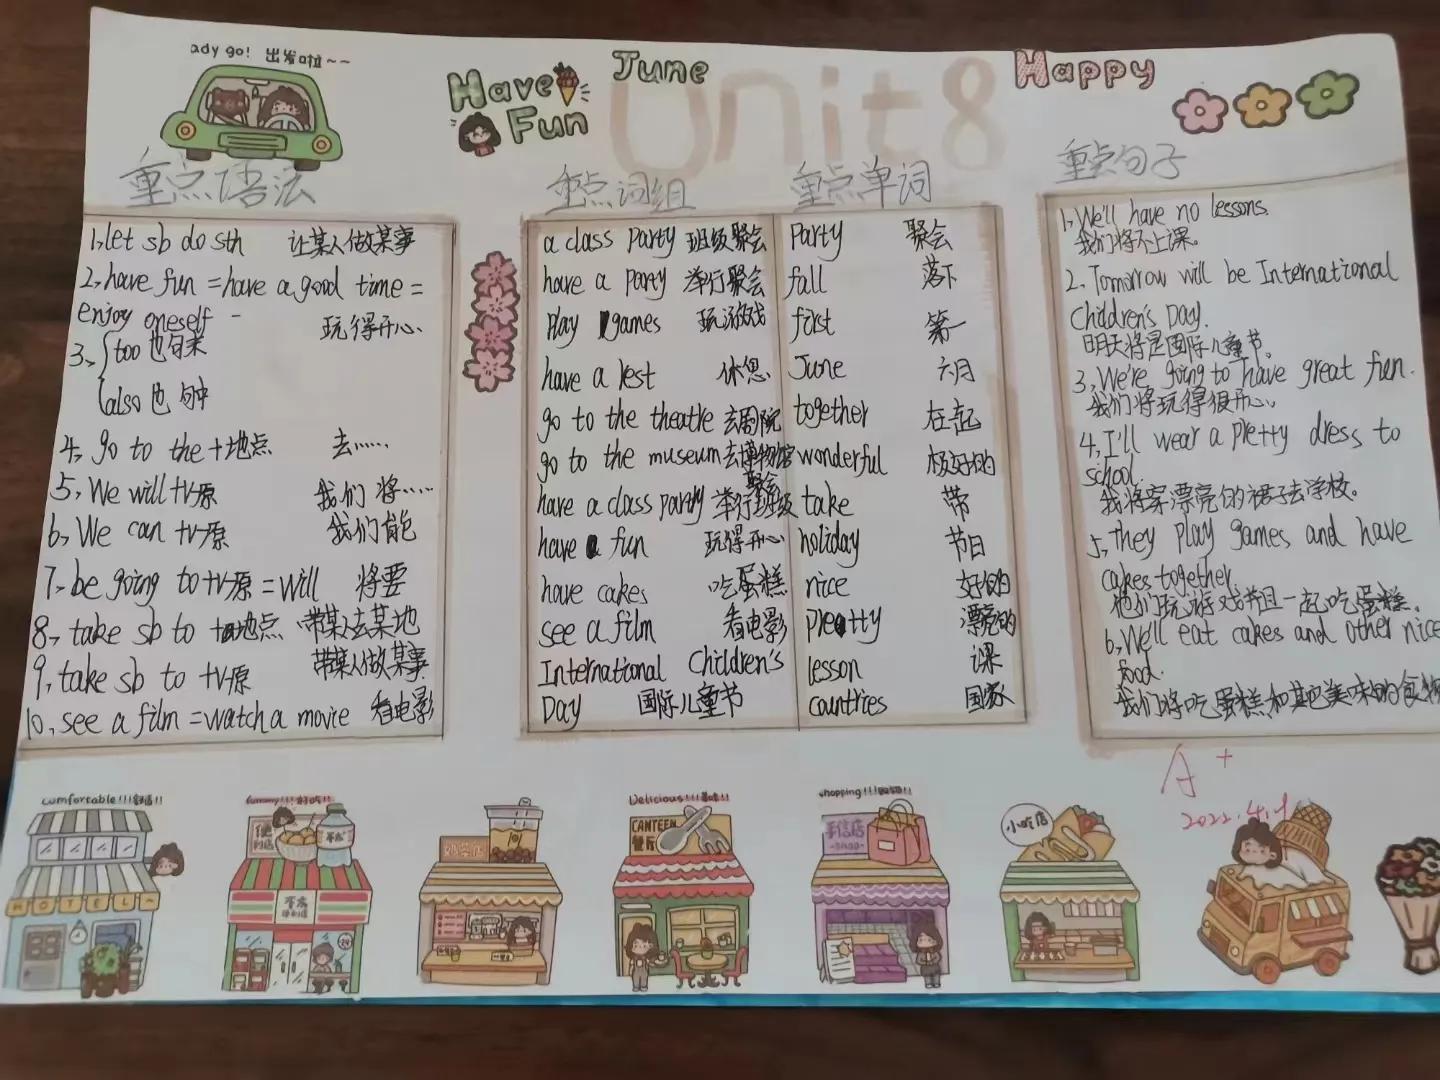 ady go! 出发啦~~
Have Fun
June
Unit 8
Happy
重点语法
1, let sb do sth 让某人做某事
2, have fun = have a good time =
enjoy oneself 玩得开心
3, too 也 句末
also 也 句中
4, go to the + 地点 去……
5, We will + v原 我们将……
6, We can + v原 我们能
7, be going to + v原 = will 将要
8, take sb to + 地点 带某人去某地
9, take sb to + v原 带某人做某事
10, see a film = watch a movie 看电影
重点词组
a class party 班级聚会
have a party 举行聚会
play games 玩游戏
have a rest 休息
go to the theatre 去剧院
go to the museum 去博物馆
have a class party 举行班级聚会
have fun 玩得开心
have cakes 吃蛋糕
see a film 看电影
International Children's
Day 国际儿童节
重点单词
party 聚会
fall 落下
first 第一
June 六月
together 在一起
wonderful 极好的
take 带
holiday 节日
nice 好的
pretty 漂亮的
lesson 课
countries 国家
重点句子
1, We'll have no lessons.
我们将不上课。
2, Tomorrow will be International
Children's Day.
明天将是国际儿童节。
3, We're going to have great fun.
我们将玩得很开心。
4, I'll wear a pretty dress to
school.
我将穿漂亮的裙子去学校。
5, They play games and have
cakes together.
他们玩游戏并且一起吃蛋糕。
6, We'll eat cakes and other nice
food.
我们将吃蛋糕和其它美味的食物
A+
2022.4.1
comfortable!!!舒适!!
HOTEL
Yummy!!!好吃!!
Delicious!!!美味!!
CANTEEN
餐厅
shopping!!!购物!!
手信店
SHOP
小吃店